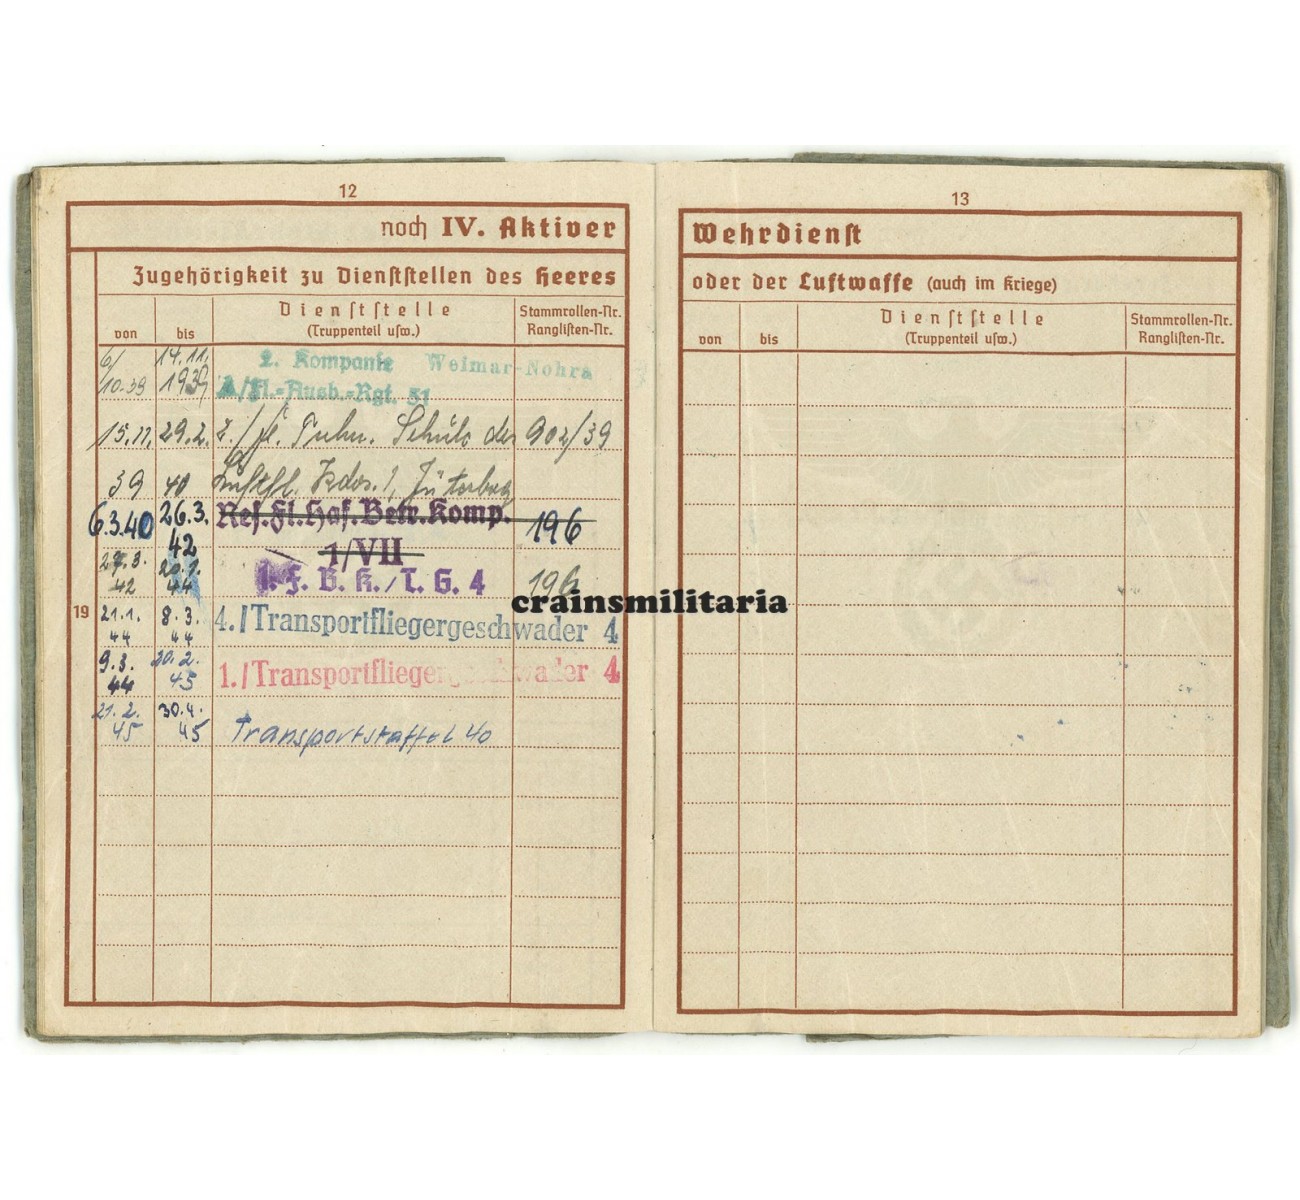 12
noch IV. Aktiver
Zugehörigkeit zu Dienststellen des Heeres
von bis Dienststelle (Truppenteil usw.) Stammrollen-Nr. Ranglisten-Nr.
6/10.39 14.11.1939 2. Kompanie Weimar-Nohra
A/Fl.-Ausb.-Rgt. 51
15.11. 29.2. Schule der 902/39
39 40 Luftfl. Kdos. 1, Jüterbog
6.3.40 26.3.42 Res.Fl.Haf.Betr.Komp. 196
1/VII
27.3.42 20.1.44 1. F. B. K./T. G. 4 196
19
21.1.44 8.3.44 4./Transportfliegergeschwader 4
9.3.44 20.2.45 1./Transportfliegergeschwader 4
21.2.45 30.4.45 Transportstaffel 40
13
Wehrdienst
oder der Luftwaffe (auch im Kriege)
von bis Dienststelle (Truppenteil usw.) Stammrollen-Nr. Ranglisten-Nr.
crainsmilitaria